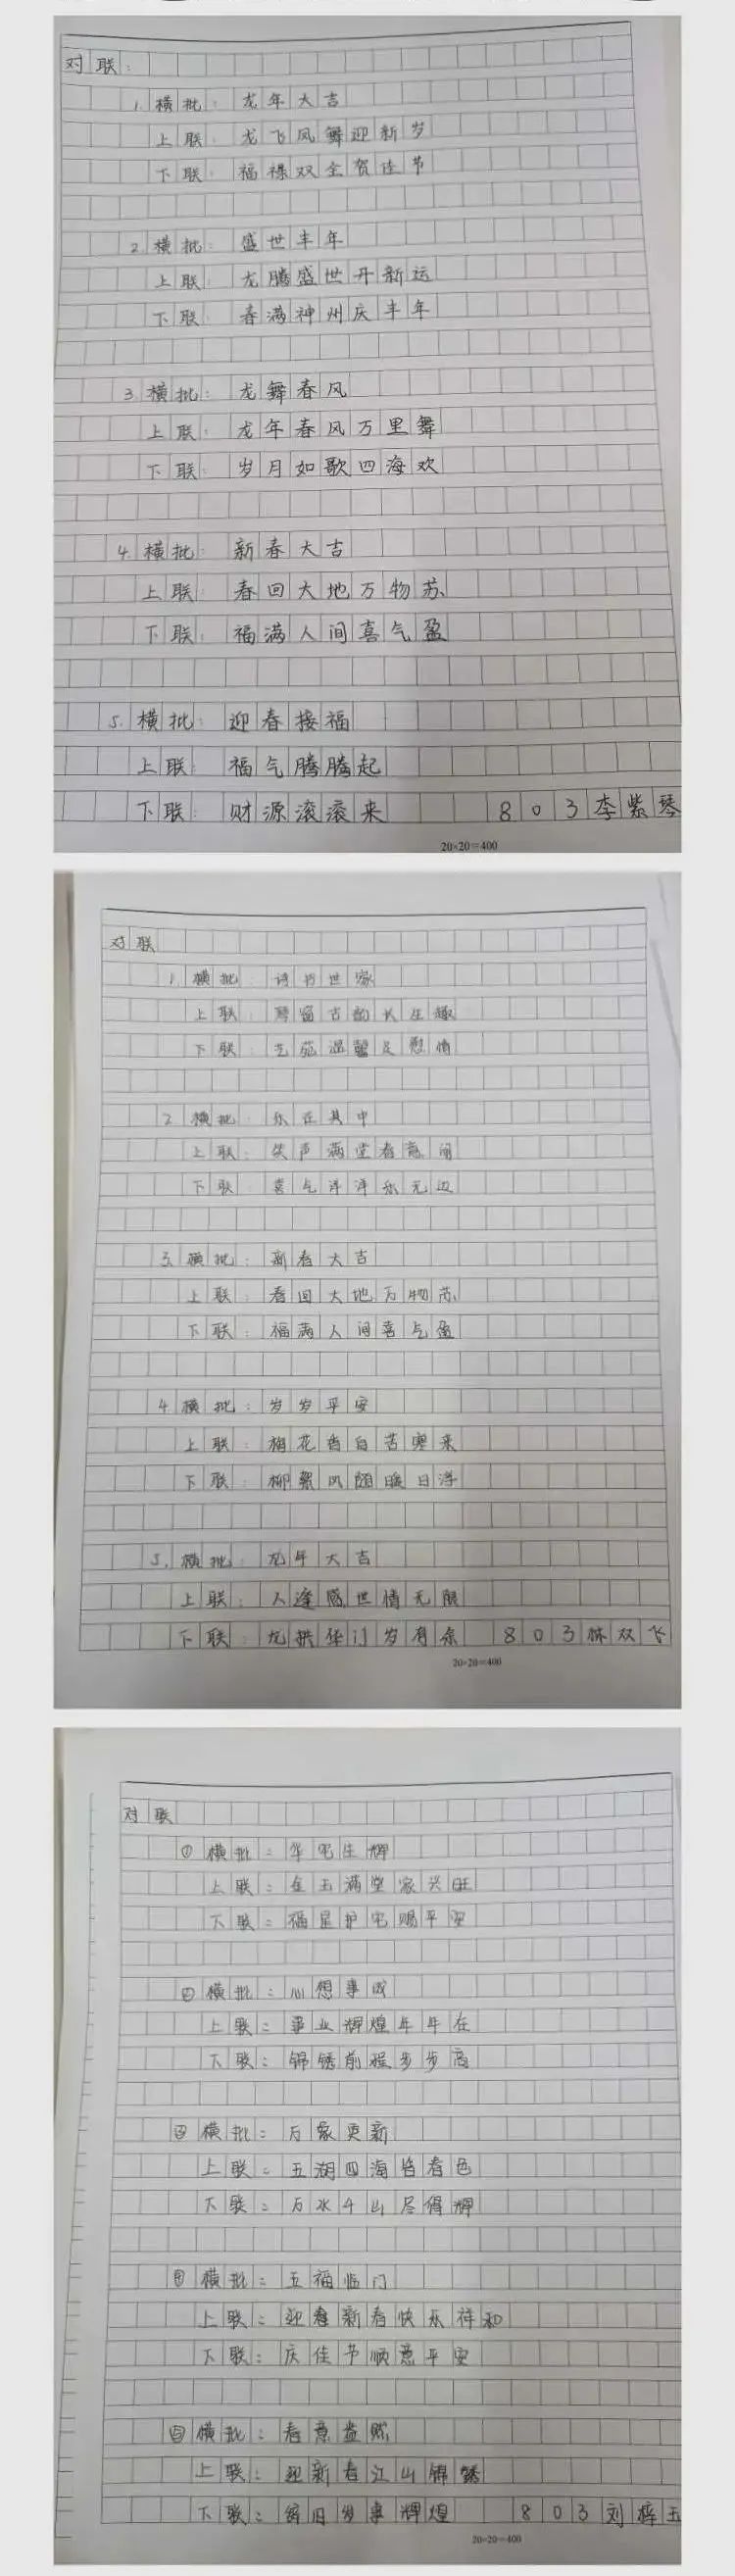 对联：
1. 横批：龙年大吉
上联：龙飞凤舞迎新岁
下联：福禄双全贺佳节
2. 横批：盛世丰年
上联：龙腾盛世开新运
下联：春满神州庆丰年
3. 横批：龙舞春风
上联：龙年春风万里舞
下联：岁月如歌四海欢
4. 横批：新春大吉
上联：春回大地万物苏
下联：福满人间喜气盈
5. 横批：迎春接福
上联：福气腾腾起
下联：财源滚滚来 803李紫琴
20×20=400
对联
1. 横批：诗书世家
上联：琴留古韵长生趣
下联：艺苑温馨足慰情
2. 横批：乐在其中
上联：笑声满堂春意闹
下联：喜气洋洋乐无边
3. 横批：新春大吉
上联：春回大地万物苏
下联：福满人间喜气盈
4. 横批：岁岁平安
上联：梅花香自苦寒来
下联：柳絮随暖日浮
5. 横批：龙年大吉
上联：人逢盛世情无限
下联：龙拱华门岁有余 803林双飞
20×20=400
对联
① 横批：华宅生辉
上联：金玉满堂家兴旺
下联：福星护宅赐平安
② 横批：心想事成
上联：事业辉煌年年在
下联：锦锈前程步步高
③ 横批：万象更新
上联：五湖四海皆春色
下联：万水千山尽得辉
④ 横批：五福临门
上联：迎新春快乐祥和
下联：庆佳节顺意平安
⑤ 横批：春意盎然
上联：迎新春江山锦绣
下联：辞旧岁事辉煌 803刘梓玉
20×20=400